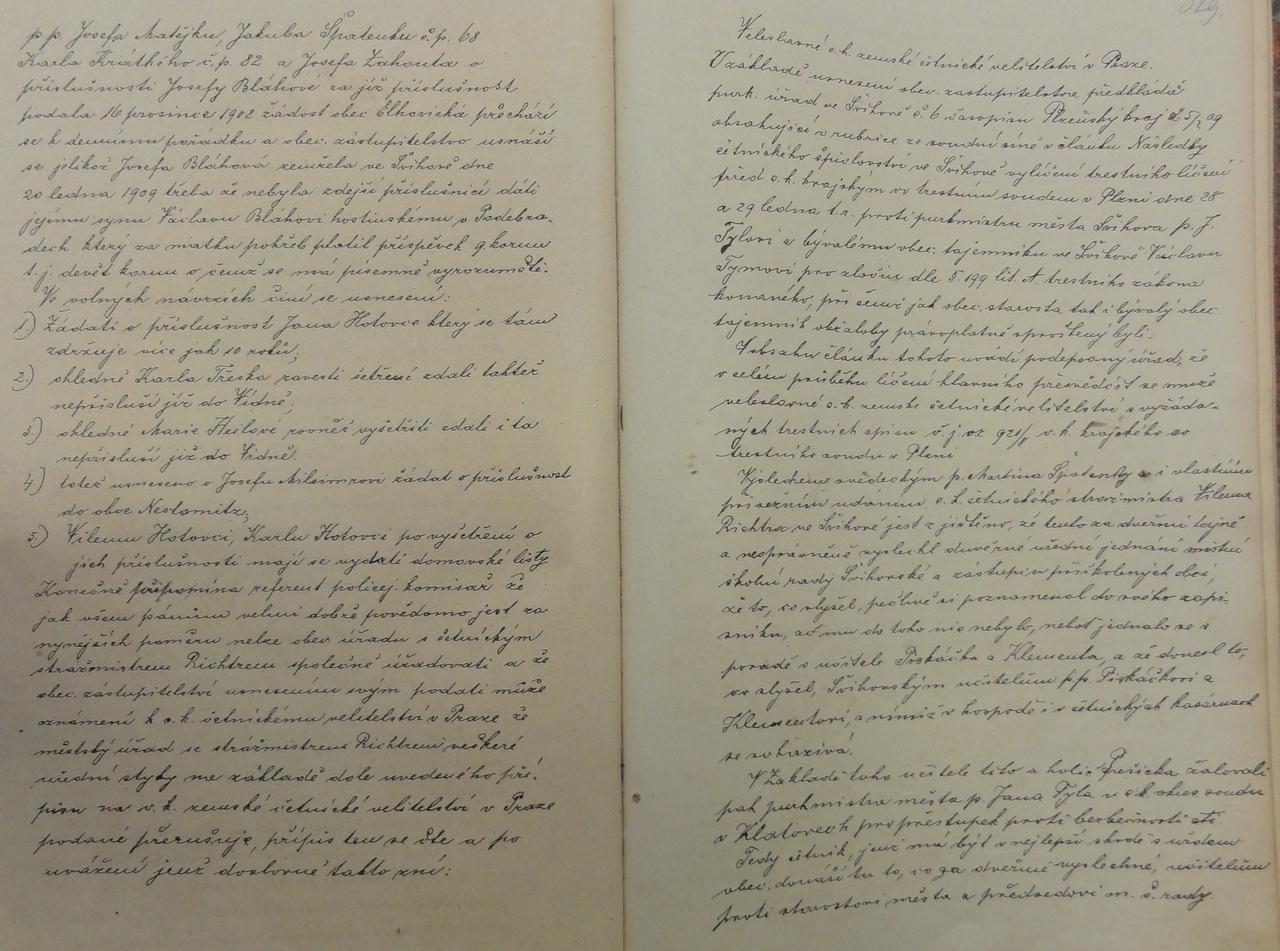 p.p. Josefa Matějku, Jakuba Špatenku č.p. 68
Karla Krátkého č.p. 82 a Josefa Žahouta o
příslušnosti Josefy Bláhové za již příslušnost
podala 16 prosince 1908 žádost obec Elhovická přechází
se k dennímu pořádku a obec. zástupitelstvo usnáší
se jelikož Josefa Bláhová zemřela ve Švihově dne
20 ledna 1909 třeba že nebyla zdejší příslušnicí dáti
jejímu synu Václavu Bláhovi hostinskému v Poděbra-
dech který za matku pohřeb platil příspěvek 9 korun
t. j. devět korun o čemž se má písemně vyrozuměti.
Ve volných návrzích činí se usnesení:
1.) Žádati o příslušnost Jana Hotovce který se tam
zdržuje více jak 10 roků;
2.) ohledně Karla Třeska zavésti šetření zdali taktéž
nepřísluší již do Vídně;
3.) ohledně Marie Heilové rovněž vyšetřiti zdali i ta
nepřísluší již do Vídně.
4.) totéž usneseno o Josefu žádat o příslušnost
do obce Nestomitz;
5.) Vilému Hotovci, Karlu Hotovci po vyšetření o
jich příslušnosti mají se vydati domovské listy
Konečně připomíná referent policej. komisař že
jak všem pánům velmi dobře povědomo jest za
nynějších poměrů nelze obec úřadu s četnickým
strážmistrem Richtrem společně úřadovati a že
obec. zástupitelství usnesením svým podati může
oznámení k c.k. četnickému velitelství v Praze že
městský úřad se strážmistrem Richtrem veškeré
úřední styky na základě dole uvedeného pří-
pisu na c.k. zemské četnické velitelství v Praze
podané přerušuje, přípis ten se čte a po
uvážení jenž doslovně takto zní:
Veleslavné c.k. zemské četnické velitelství v Praze.
V základě usnesení obec. zastupitelstva předkládá
purk. úřad ve Švihově č. 6 časopisu Plzeňský kraj z 5/2 09
obsahující v rubrice ze soudní síně v článku Následky
četnického špiclovství ve Švihově vylíčení trestního líčení
před c.k. krajským co trestním soudem v Plzni dne 28
a 29 ledna t.r. proti purkmistru města Švihova p. J.
Tylovi a bývalému obec. tajemníku ve Švihově Václavu
Tymovi pro zločin dle §. 199 lit. A. trestního zákona
konaného, při čemž jak obec. starosta tak i bývalý obec.
tajemník obžaloby právoplatně sproštěný byli.
V obsahu článku tohoto uvádí podepsaný úřad, že
v celém průběhu líčení hlavního přesvědčit se může
veleslavné c.k. zemské četnické velitelství s vyžáda-
ných trestních spisu č. j. vz 921/8 c.k. krajského co
trestního soudu v Plzni
Výslechem svědeckým p. Martina Špatenky a i vlastním
přísežním udáním c.k. četnického strážmistra Viléma
Richtra ve Švihově jest z jištěno, že tento za dveřmi tajně
a neoprávněně vyslechl důvěrné úřední jednání místní
školní rady Švihovské a zástupců přiškolených obcí,
že to, co slyšel, pečlivě si poznamenal do svého zápi-
sníku, ač mu do toho nic nebylo, neboť jednalo se v
poradě s učitele Piskáčka a Klementa, a že donesl to,
co slyšel, Švihovským učitelům p.p. Piskáčkovi a
Klementovi, s nimiž v hospodě i v četnických kasárnách
se scházívá.
V Základě toho učitelé tito a holič Pušička žalovali
pak purkmistra města p. Jana Tyla u c.k. okres. soudu
v Klatovech pro přestupek proti bezbečnosti cti.
Tedy četník, jenž má být v nejlepší shodě s úřadem
obec. donáší tu to, co za dveřmi vyslechne, učitelům
proti starostovi města a předsedovi m. š. rady.